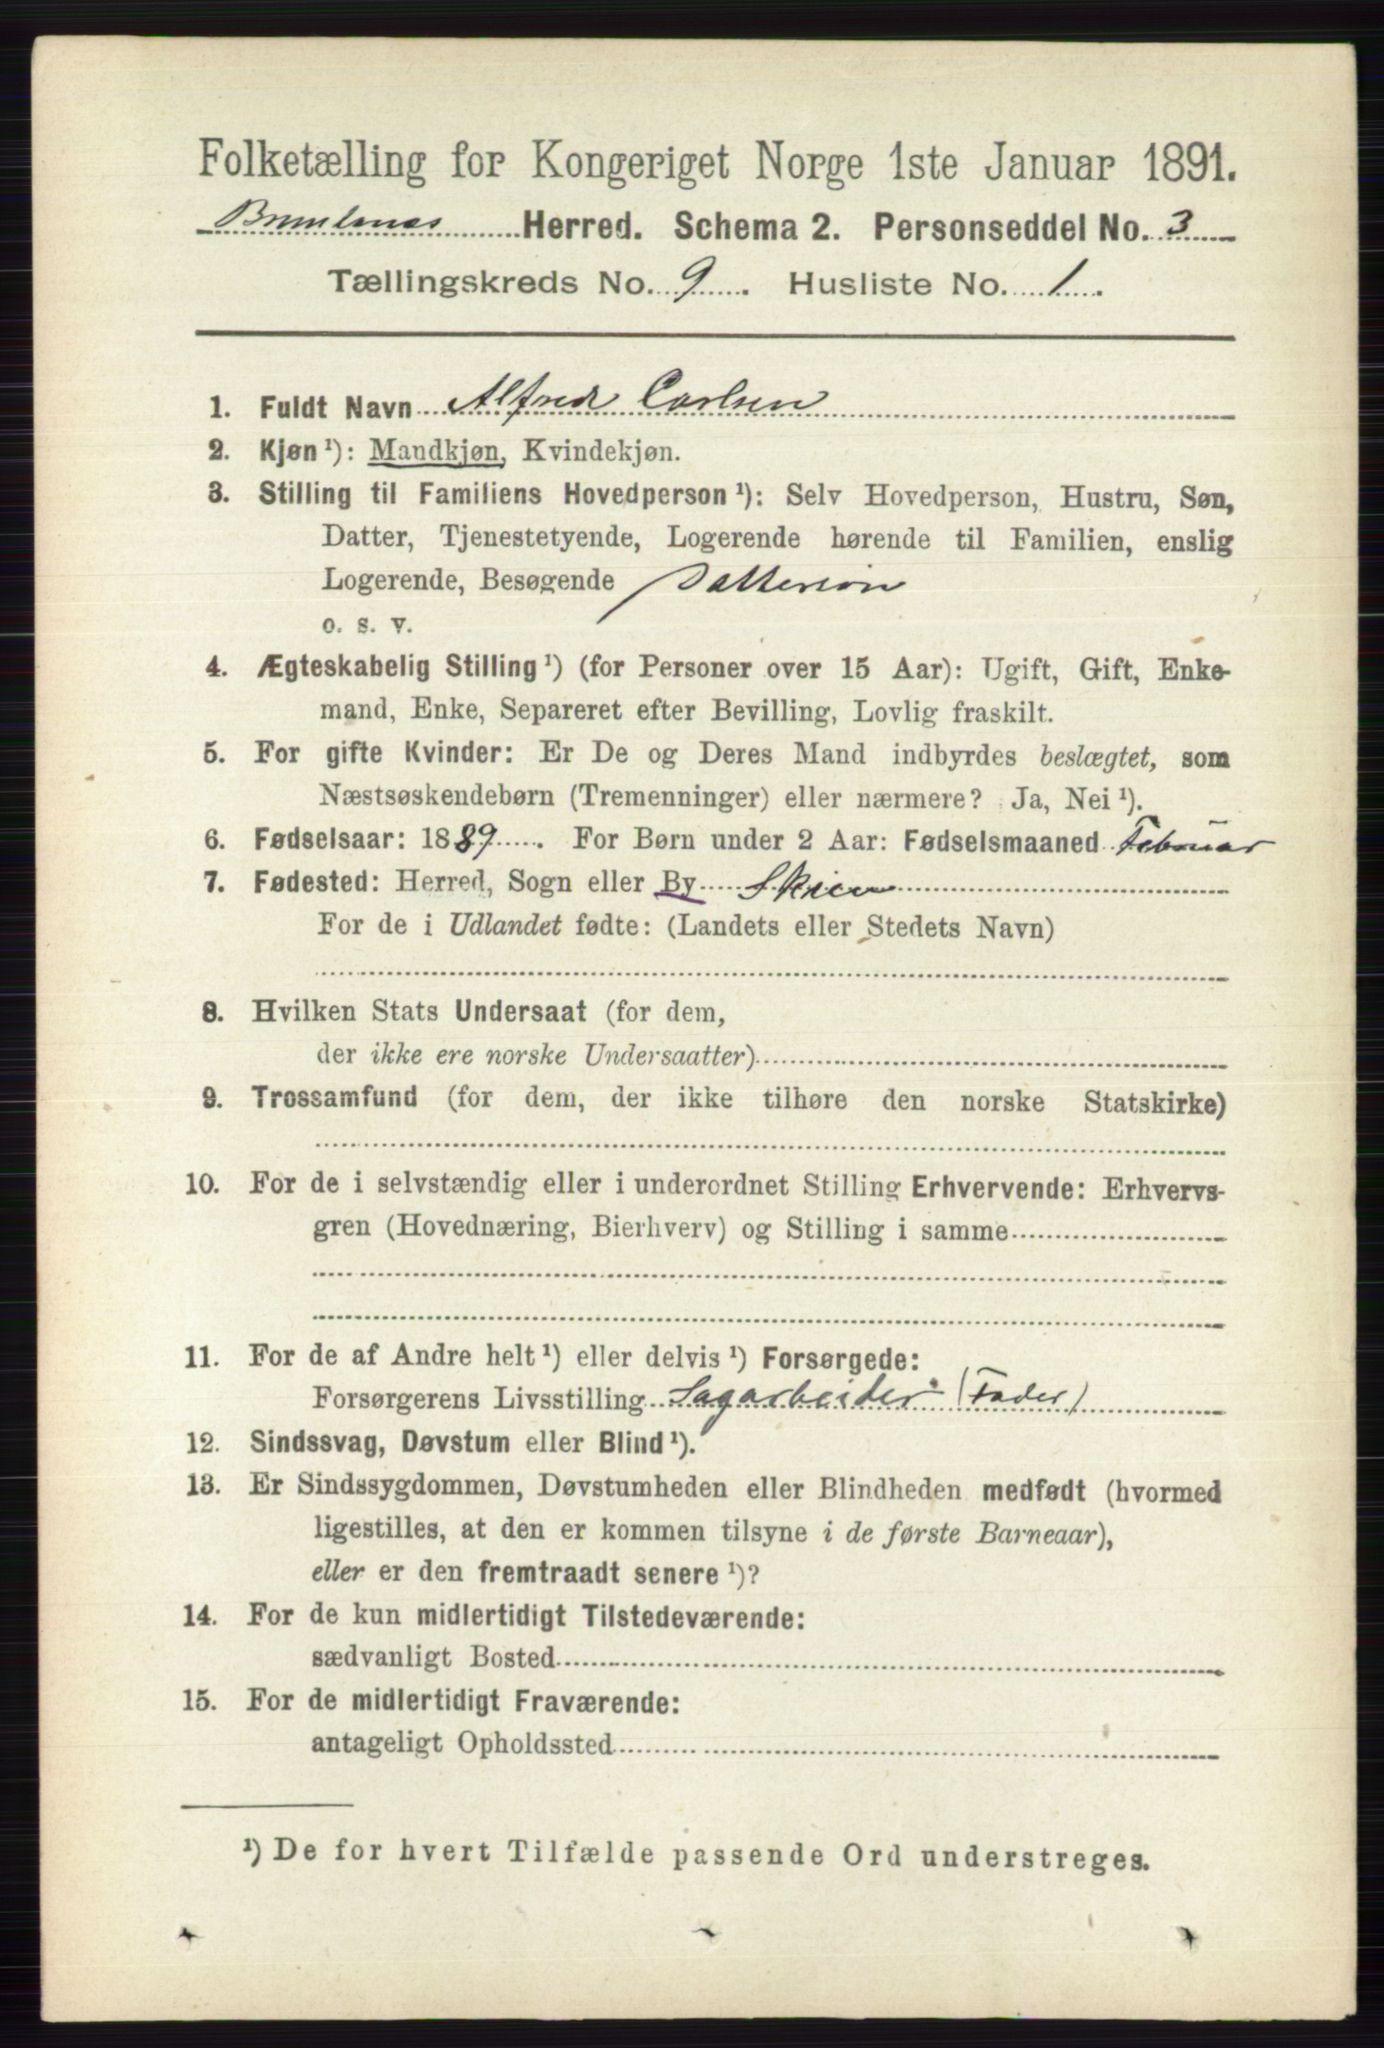 Folketælling for Kongeriget Norge 1ste Januar 1891.
Brunlanæs Herred. Schema 2. Personseddel No. 3
Tællingskreds No. 9. Husliste No. 1.
1. Fuldt Navn Alfred Carlsen
2. Kjøn¹): Mandkjøn, Kvindekjøn.
3. Stilling til Familiens Hovedperson¹): Selv Hovedperson, Hustru, Søn,
Datter, Tjenestetyende, Logerende hørende til Familien, enslig
Logerende, Besøgende Dattersön
o. s. v.
4. Ægteskabelig Stilling¹) (for Personer over 15 Aar): Ugift, Gift, Enke-
mand, Enke, Separeret efter Bevilling, Lovlig fraskilt.
5. For gifte Kvinder: Er De og Deres Mand indbyrdes beslægtet, som
Næstsøskendebørn (Tremenninger) eller nærmere? Ja, Nei¹).
6. Fødselsaar: 1889. For Børn under 2 Aar: Fødselsmaaned Februar
7. Fødested: Herred, Sogn eller By Skien
For de i Udlandet fødte: (Landets eller Stedets Navn)
8. Hvilken Stats Undersaat (for dem,
der ikke ere norske Undersaatter)
9. Trossamfund (for dem, der ikke tilhøre den norske Statskirke)
10. For de i selvstændig eller i underordnet Stilling Erhvervende: Erhvervs-
gren (Hovednæring, Bierhverv) og Stilling i samme
11. For de af Andre helt¹) eller delvis¹) Forsørgede:
Forsørgerens Livsstilling Sagarbeider (Fader)
12. Sindssvag, Døvstum eller Blind¹).
13. Er Sindssygdommen, Døvstumheden eller Blindheden medfødt (hvormed
ligestilles, at den er kommen tilsyne i de første Barneaar),
eller er den fremtraadt senere¹)?
14. For de kun midlertidigt Tilstedeværende:
sædvanligt Bosted
15. For de midlertidigt Fraværende:
antageligt Opholdssted
¹) De for hvert Tilfælde passende Ord understreges.